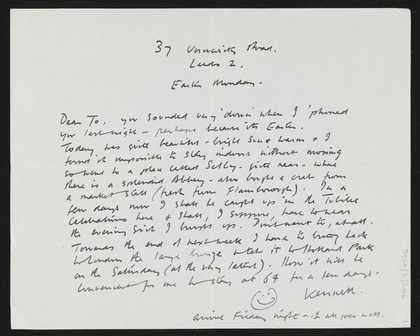 37 Warwick Road.
Leeds 2.
Easter Monday.
Dear To, you sounded very 'down' when I 'phoned
you last night — perhaps because its Easter.
Today was quite beautiful - bright sun & warm & I
found it impossible to stay indoors without moving
so went to a place called Selby - quite near - where
there is a splendid Abbey - also bought a crab from
a market stall (fresh from Flamborough). In a
few days now I shall be caught up in the Jubilee
Celebrations here & shall, I suppose, have to wear
the evening suit I brought up. Don't want to, at all.
Towards the end of next week I have to bring back
to London the large image, take it to Holland Park
on the Saturday (at the very latest). Hope it will be
convenient for me to stay at 64 for a few days.
Kenneth.
arrive Friday night - if all goes well.